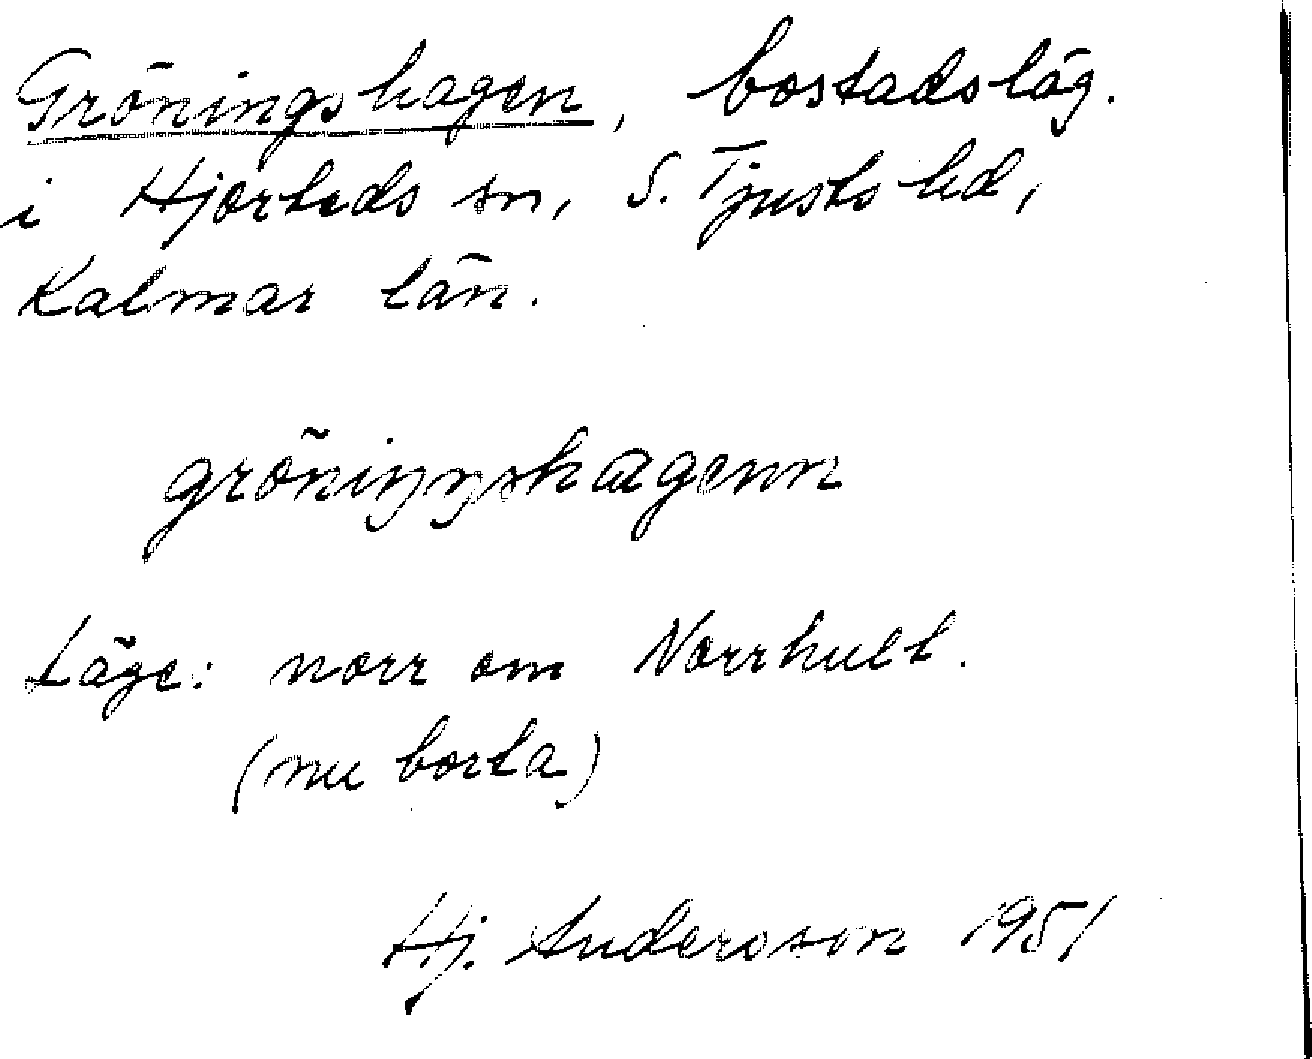 Gröningshagen, bostadsläg.
i Hjorteds sn, S. Tjusts hd,
Kalmar län.
gröniŋŋshagenn
Läge: norr om Norrhult.
(nu borta)
Hj. Andersson 1951